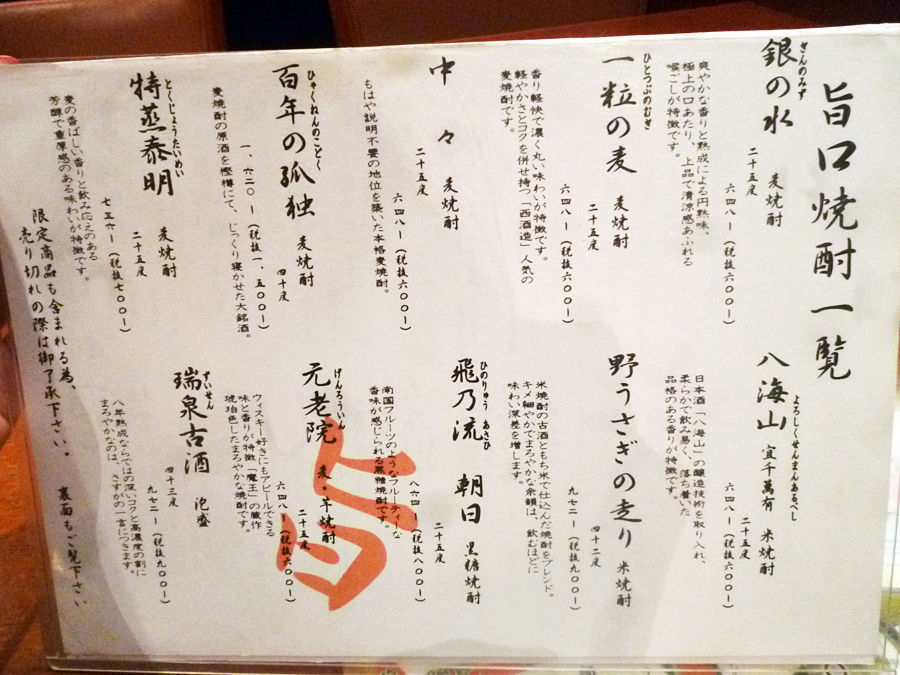 旨口焼酎一覧
ぎんのみず
銀の水 麦焼酎
二十五度
六四八ー（税抜六〇〇ー）
爽やかな香りと熟成による円熟味、
極上の口あたり、上品で清涼感あふれる
喉ごしが特徴です。
ひとつぶのむぎ
一粒の麦 麦焼酎
二十五度
六四八ー（税抜六〇〇ー）
香り軽快で濃く丸い味わいが特徴です。
軽やかさとコクを併せ持つ「西酒造」人気の
麦焼酎です。
中々 麦焼酎
二十五度
六四八ー（税抜六〇〇ー）
もはや説明不要の地位を築いた本格麦焼酎。
ひゃくねんのこどく
百年の孤独 麦焼酎
四十度
一、六二〇ー（税抜一、五〇〇ー）
麦焼酎の原酒を樫樽にて、じっくり寝かせた大銘酒。
とくじょうたいめい
特蒸泰明 麦焼酎
二十五度
七五六ー（税抜七〇〇ー）
麦の香ばしい香りと飲み応えのある
芳醇で重厚感のある味わいが特徴です。
八海山 よろしくせんまんあるべし
宜千萬有 米焼酎
二十五度
六四八ー（税抜六〇〇ー）
日本酒「八海山」の醸造技術を取り入れ、
柔らかで飲み易く、落ち着いた
品格のある香りが特徴です。
野うさぎの走り 米焼酎
四十二度
九七二ー（税抜九〇〇ー）
米焼酎の古酒ともち米で仕込んだ焼酎をブレンド。
キメ細やかでまろやかな余韻は、飲むほどに
味わい深さを増します。
ひのりゅう あさひ
飛乃流 朝日 黒糖焼酎
二十五度
八六四ー（税抜八〇〇ー）
南国フルーツのようなフルーティーな
香味が感じられる黒糖焼酎です。
げんろういん
元老院 麦・芋焼酎
二十五度
六四八ー（税抜六〇〇ー）
ウィスキー好きにもアピールできる
味と香りが特徴「魔王」の蔵作
琥珀色したまろやかな焼酎です。
ずいせん
瑞泉古酒 泡盛
四十三度
九七二ー（税抜九〇〇ー）
八年熟成ならではの深いコクと高濃度の割に
まろやかなのは、さすがの一言につきます。
限定商品も含まれる為、
売り切れの際は御了承下さい。 裏面もご覧下さい